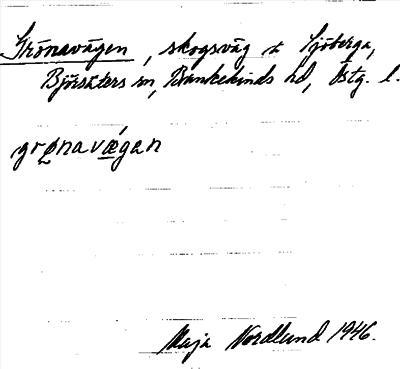 Grönavägen, skogsväg t Sjöberga,
Björsäters sn, Bankekinds hd, Östg. l.
grǿnavǽgan
Maja Nordlund 1946.